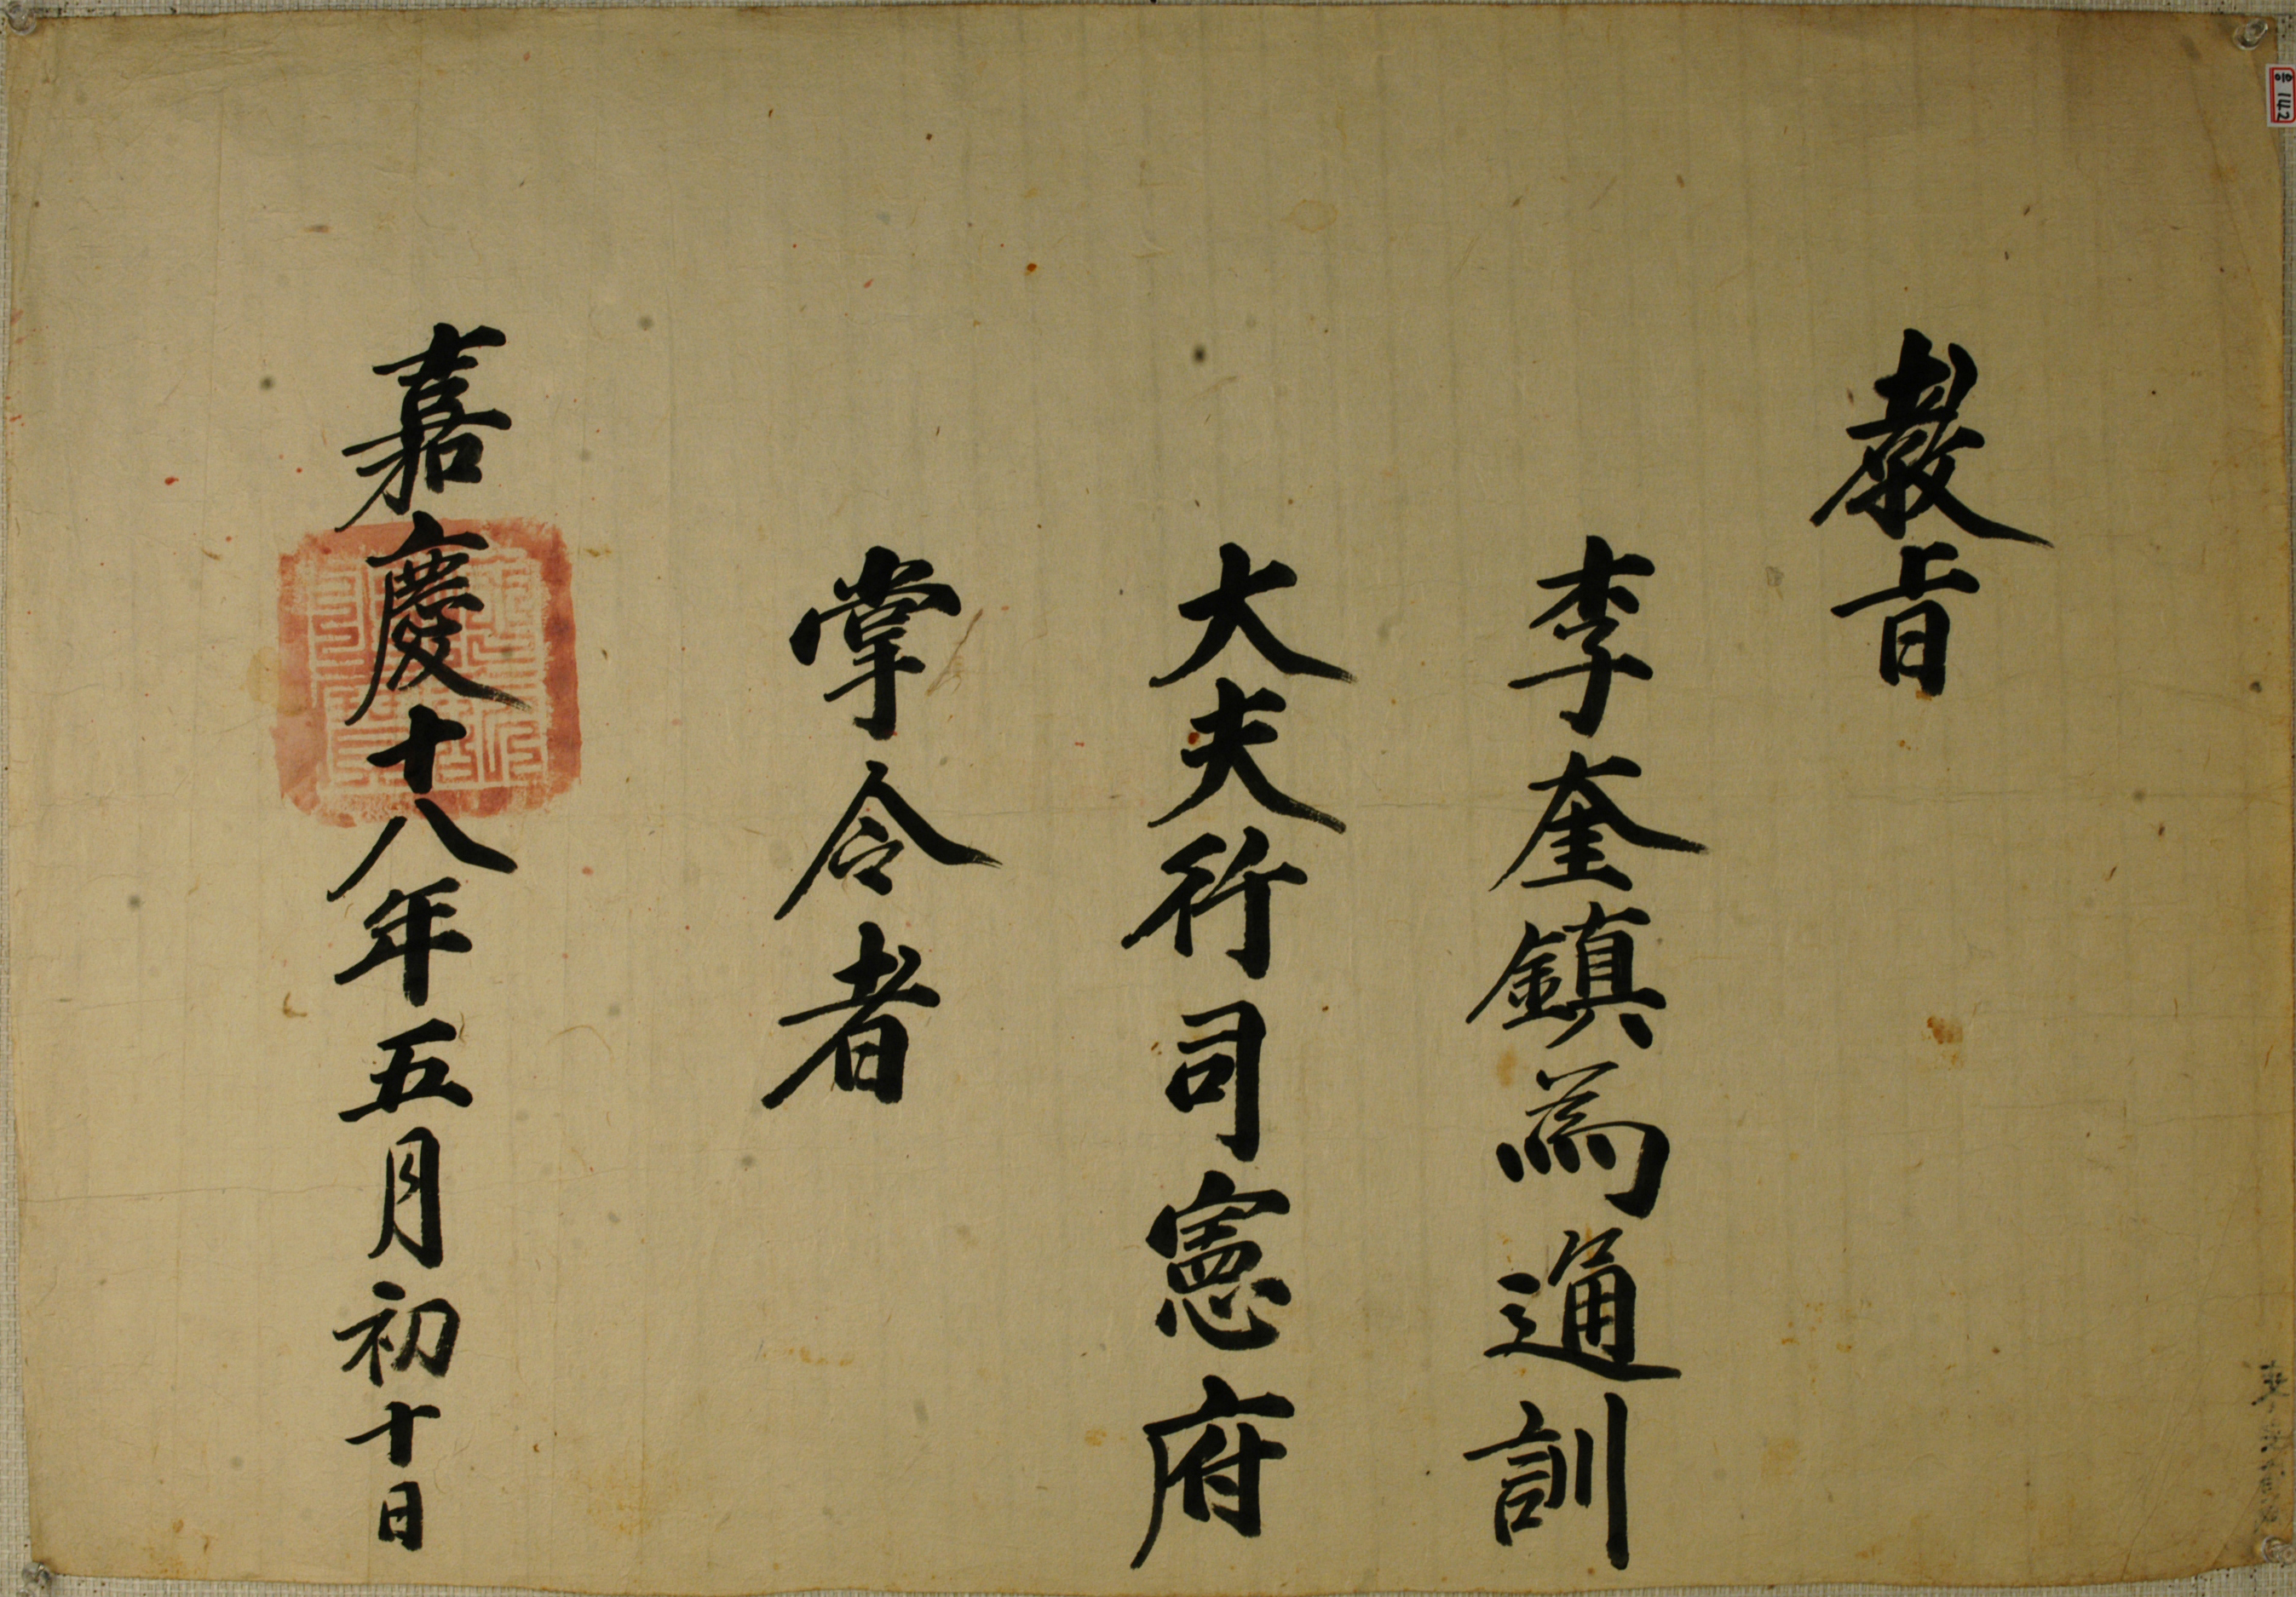 敎旨
李奎鎭爲通訓
大夫行司憲府
掌令者
嘉慶十八年五月初十日
142